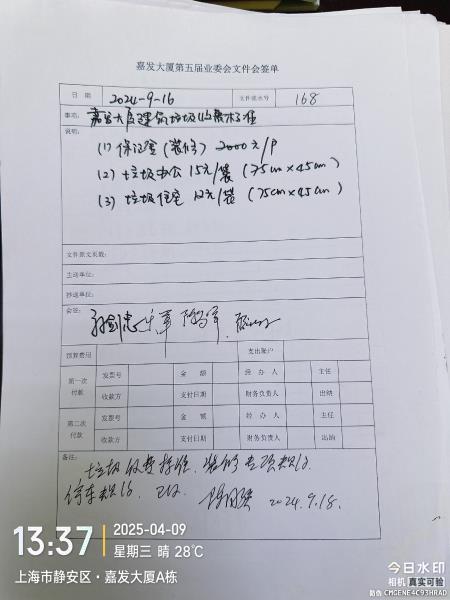 嘉发大厦第五届业委会文件会签单
日期 2024-9-16 文件流水号 168
事项: 嘉发大厦建筑垃圾收费标准
说明:
(1) 保证金(装修) 2000元/户
(2) 垃圾办公 15元/袋 (75cm×45cm)
(3) 垃圾住宅 12元/袋 (75cm×45cm)
文件原文页数:
主送单位:
抄送单位:
会签:
预算费用 支出账户
第一次付款 发票号 金额 经办人 主任
收款方 支付日期 财务负责人 出纳
第二次付款 发票号 金额 经办人 主任
收款方 支付日期 财务负责人 出纳
备注:
垃圾收费标准、装修专项
停车 2024.9.18.
13:37 2025-04-09
星期三 晴 28℃
上海市静安区·嘉发大厦A栋
今日水印
相机 真实可验
防伪 CMGENE4C93HRAD